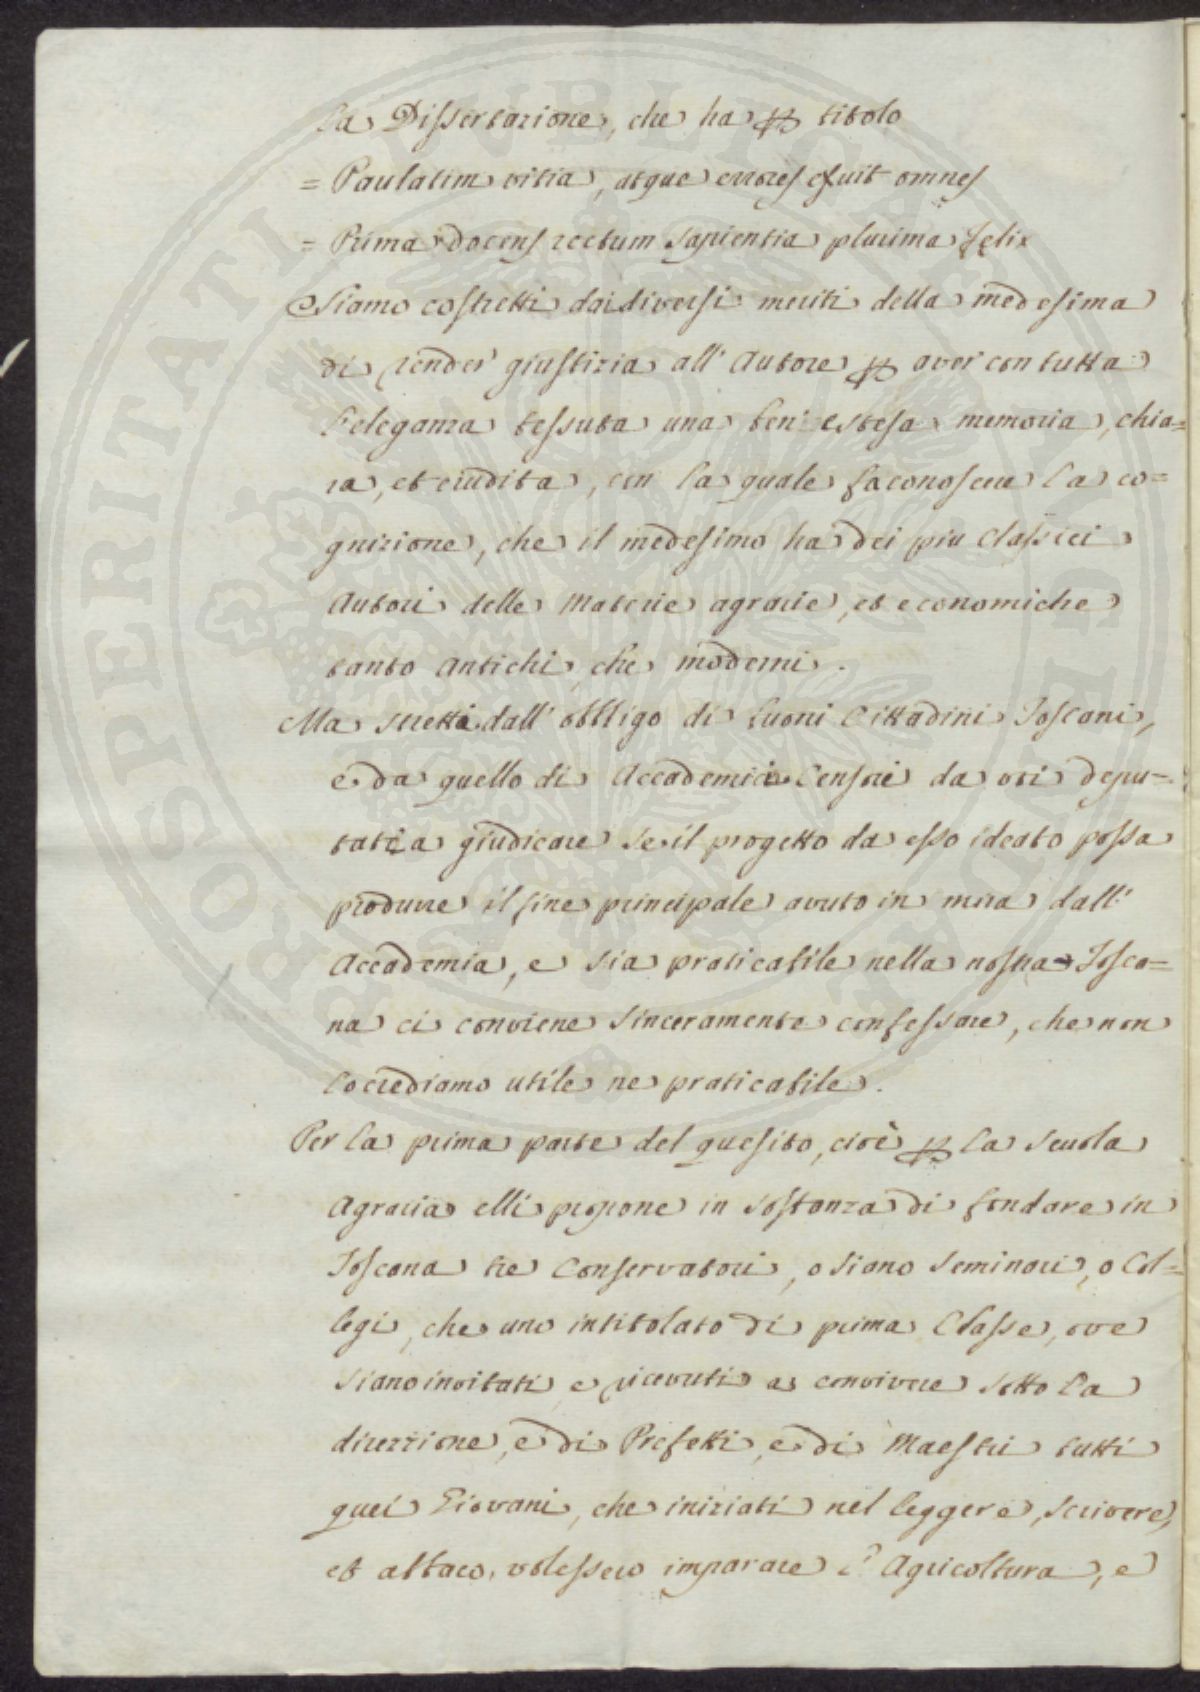 La Dissertazione, che ha p titolo
= Paulatim vitia, atque errores exuit omnes
= Prima docens rectum sapientia plurima felix
Siamo costretti dai diversi meriti della medesima
di render' giustizia all' Autore p aver' con tutta
l'eleganza tessuta una ben' estesa memoria, chia=
ra, et erudita, con la quale fa conoscere la co=
gnizione, che il medesimo ha dei piu Classici
Autori delle Materie agrarie, et economiche
tanto Antichi, che moderni.
Ma stretti dall' obbligo di buoni Cittadini Toscani,
e da quello di Accademici Censori da voi depu=
tati a giudicare se il progetto da esso ideato possa
produrre il fine principale avuto in mira dall'
Accademia, e sia praticabile nella nostra Tosca=
na ci conviene sinceramente confessare, che non
lo crediamo utile ne praticabile.
Per la prima parte del quesito, cioè p la scuola
Agraria elli propone in sostanza di fondare in
Toscana tre Conservatori, o siano Seminari, o Col=
legi, che uno intitolato di prima Classe, ove
siano invitati e ricevuti a convivere sotto la
direzzione, e di Prefetti, e di Maestri tutti
quei Giovani, che iniziati nel leggere, scrivere,
et abbaco, volessero imparare l' Agricoltura, e
PROSPERITATI PUBLICAE AUGENDAE